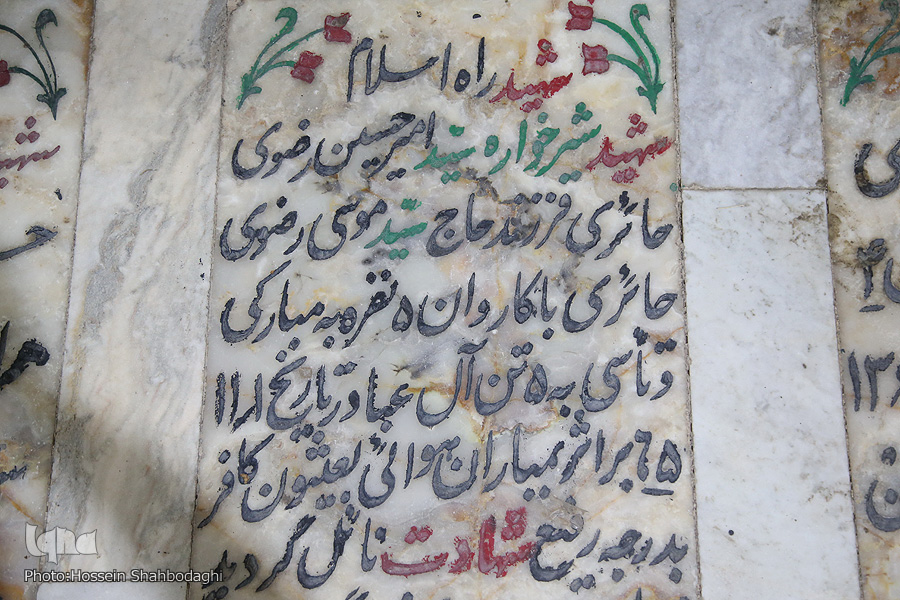 شهید راه اسلام
شهید شیرخواره سید امیرحسین رضوی
حائری فرزند حاج سیّد موسی رضوی
حائری با کاروان ۵ نفره به مبارکی
و تأسی به ۵ تن آل عبا در تاریخ ۱۱ر۱
۶۵ بر اثر بمباران هوائی بعثیون کافر
بدرجه رفیع شهادت نائل گردید
شهید
۱۳۶
iqna
Photo:Hossein Shahbodaghi